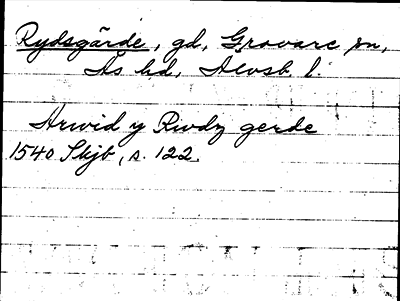 Rydsgärde, gd, Gravare sn,
Ås hd, Älvsb. l.
Arwid y Rwdz gerde
1540 Skjb, s. 122.